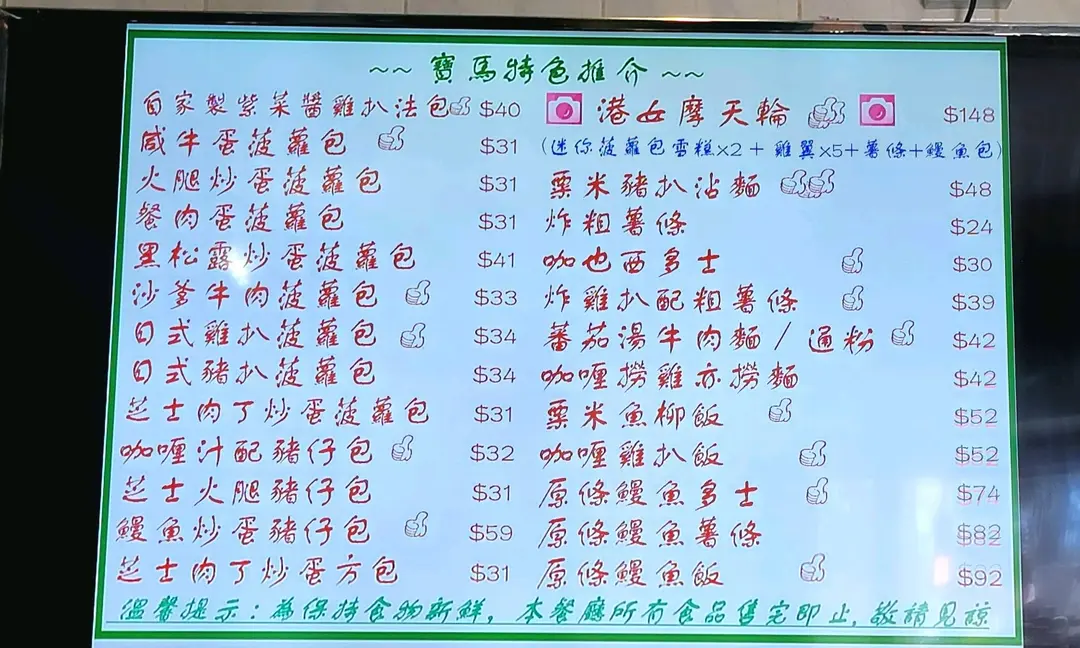 ~~ 寶馬特色推介 ~~
自家製紫菜醬雞扒法包 $40
咸牛蛋菠蘿包 $31
火腿炒蛋菠蘿包 $31
餐肉蛋菠蘿包 $31
黑松露炒蛋菠蘿包 $41
沙爹牛肉菠蘿包 $33
日式雞扒菠蘿包 $34
日式豬扒菠蘿包 $34
芝士肉丁炒蛋菠蘿包 $31
咖喱汁配豬仔包 $32
芝士火腿豬仔包 $31
鰻魚炒蛋豬仔包 $59
芝士肉丁炒蛋方包 $31
港女摩天輪 $148
(迷你菠蘿包雪糕x2+雞翼x5+薯條+鰻魚包)
粟米豬扒沾麵 $48
炸粗薯條 $24
咖也西多士 $30
炸雞扒配粗薯條 $39
蕃茄湯牛肉麵/通粉 $42
咖喱撈雞亦撈麵 $42
粟米魚柳飯 $52
咖喱雞扒飯 $52
原條鰻魚多士 $74
原條鰻魚薯條 $82
原條鰻魚飯 $92
溫馨提示:為保持食物新鮮,本餐廳所有食品售完即止,敬請見諒